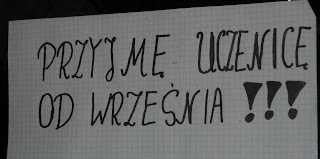 PRZYJMĘ UCZENICĘ
OD WRZEŚNIA !!!